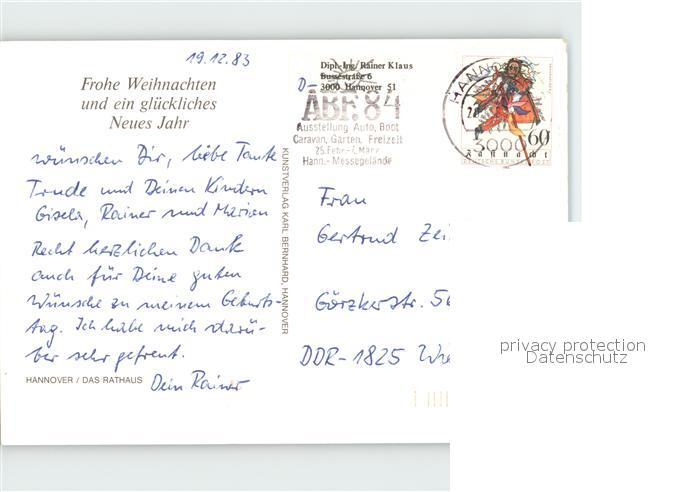 19.12.83
Frohe Weihnachten
und ein glückliches
Neues Jahr
wünschen Dir, liebe Tante
Trude und Deinen Kindern
Gisela, Rainer und Marion
Recht herzlichen Dank
auch für Deine guten
Wünsche zu meinem Geburts-
tag. Ich habe mich darü-
ber sehr gefreut.
Dein Rainer
HANNOVER / DAS RATHAUS
KUNSTVERLAG KARL BERNHARD, HANNOVER
Dipl.-Ing. Rainer Klaus
Bussestraße 6
D- 3000 Hannover 51
ABF. 84
Ausstellung Auto, Boot
Caravan, Garten, Freizeit
25. Febr.-4. März
Hann.-Messegelände
HANNO
3000
60
DEUTSCHE BUNDESPOST
Frau
Gertrud Zei
Görzkerstr. 56
DDR-1825 Wie
privacy protection
Datenschutz